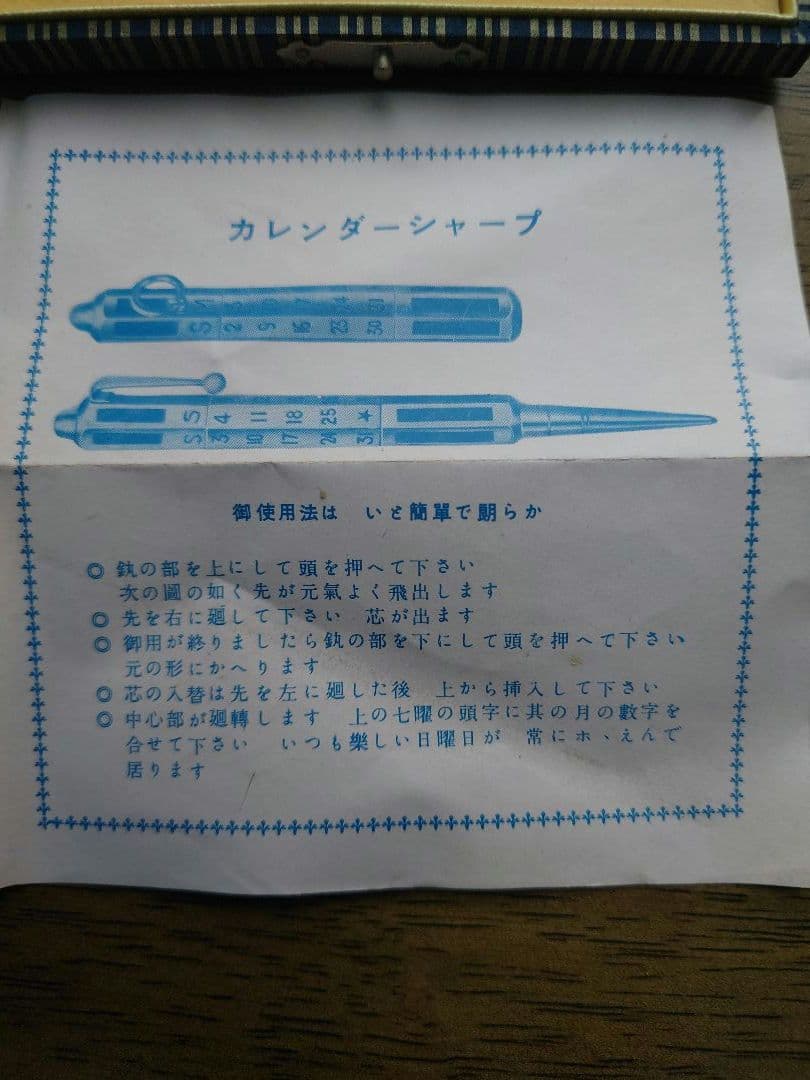 カレンダーシャープ
1 3 6 7 24 31
S 2 9 16 23 30
S 4 11 18 25 ★
S 3 10 17 24 31
御使用法は いと簡單で朗らか
◎ 釻の部を上にして頭を押へて下さい
次の圖の如く先が元氣よく飛出します
◎ 先を右に廻して下さい 芯が出ます
◎ 御用が終りましたら釻の部を下にして頭を押へて下さい
元の形にかへります
◎ 芯の入替は先を左に廻した後 上から挿入して下さい
◎ 中心部が廻轉します 上の七曜の頭字に其の月の數字を
合せて下さい いつも樂しい日曜日が 常にホヽえんで
居ります